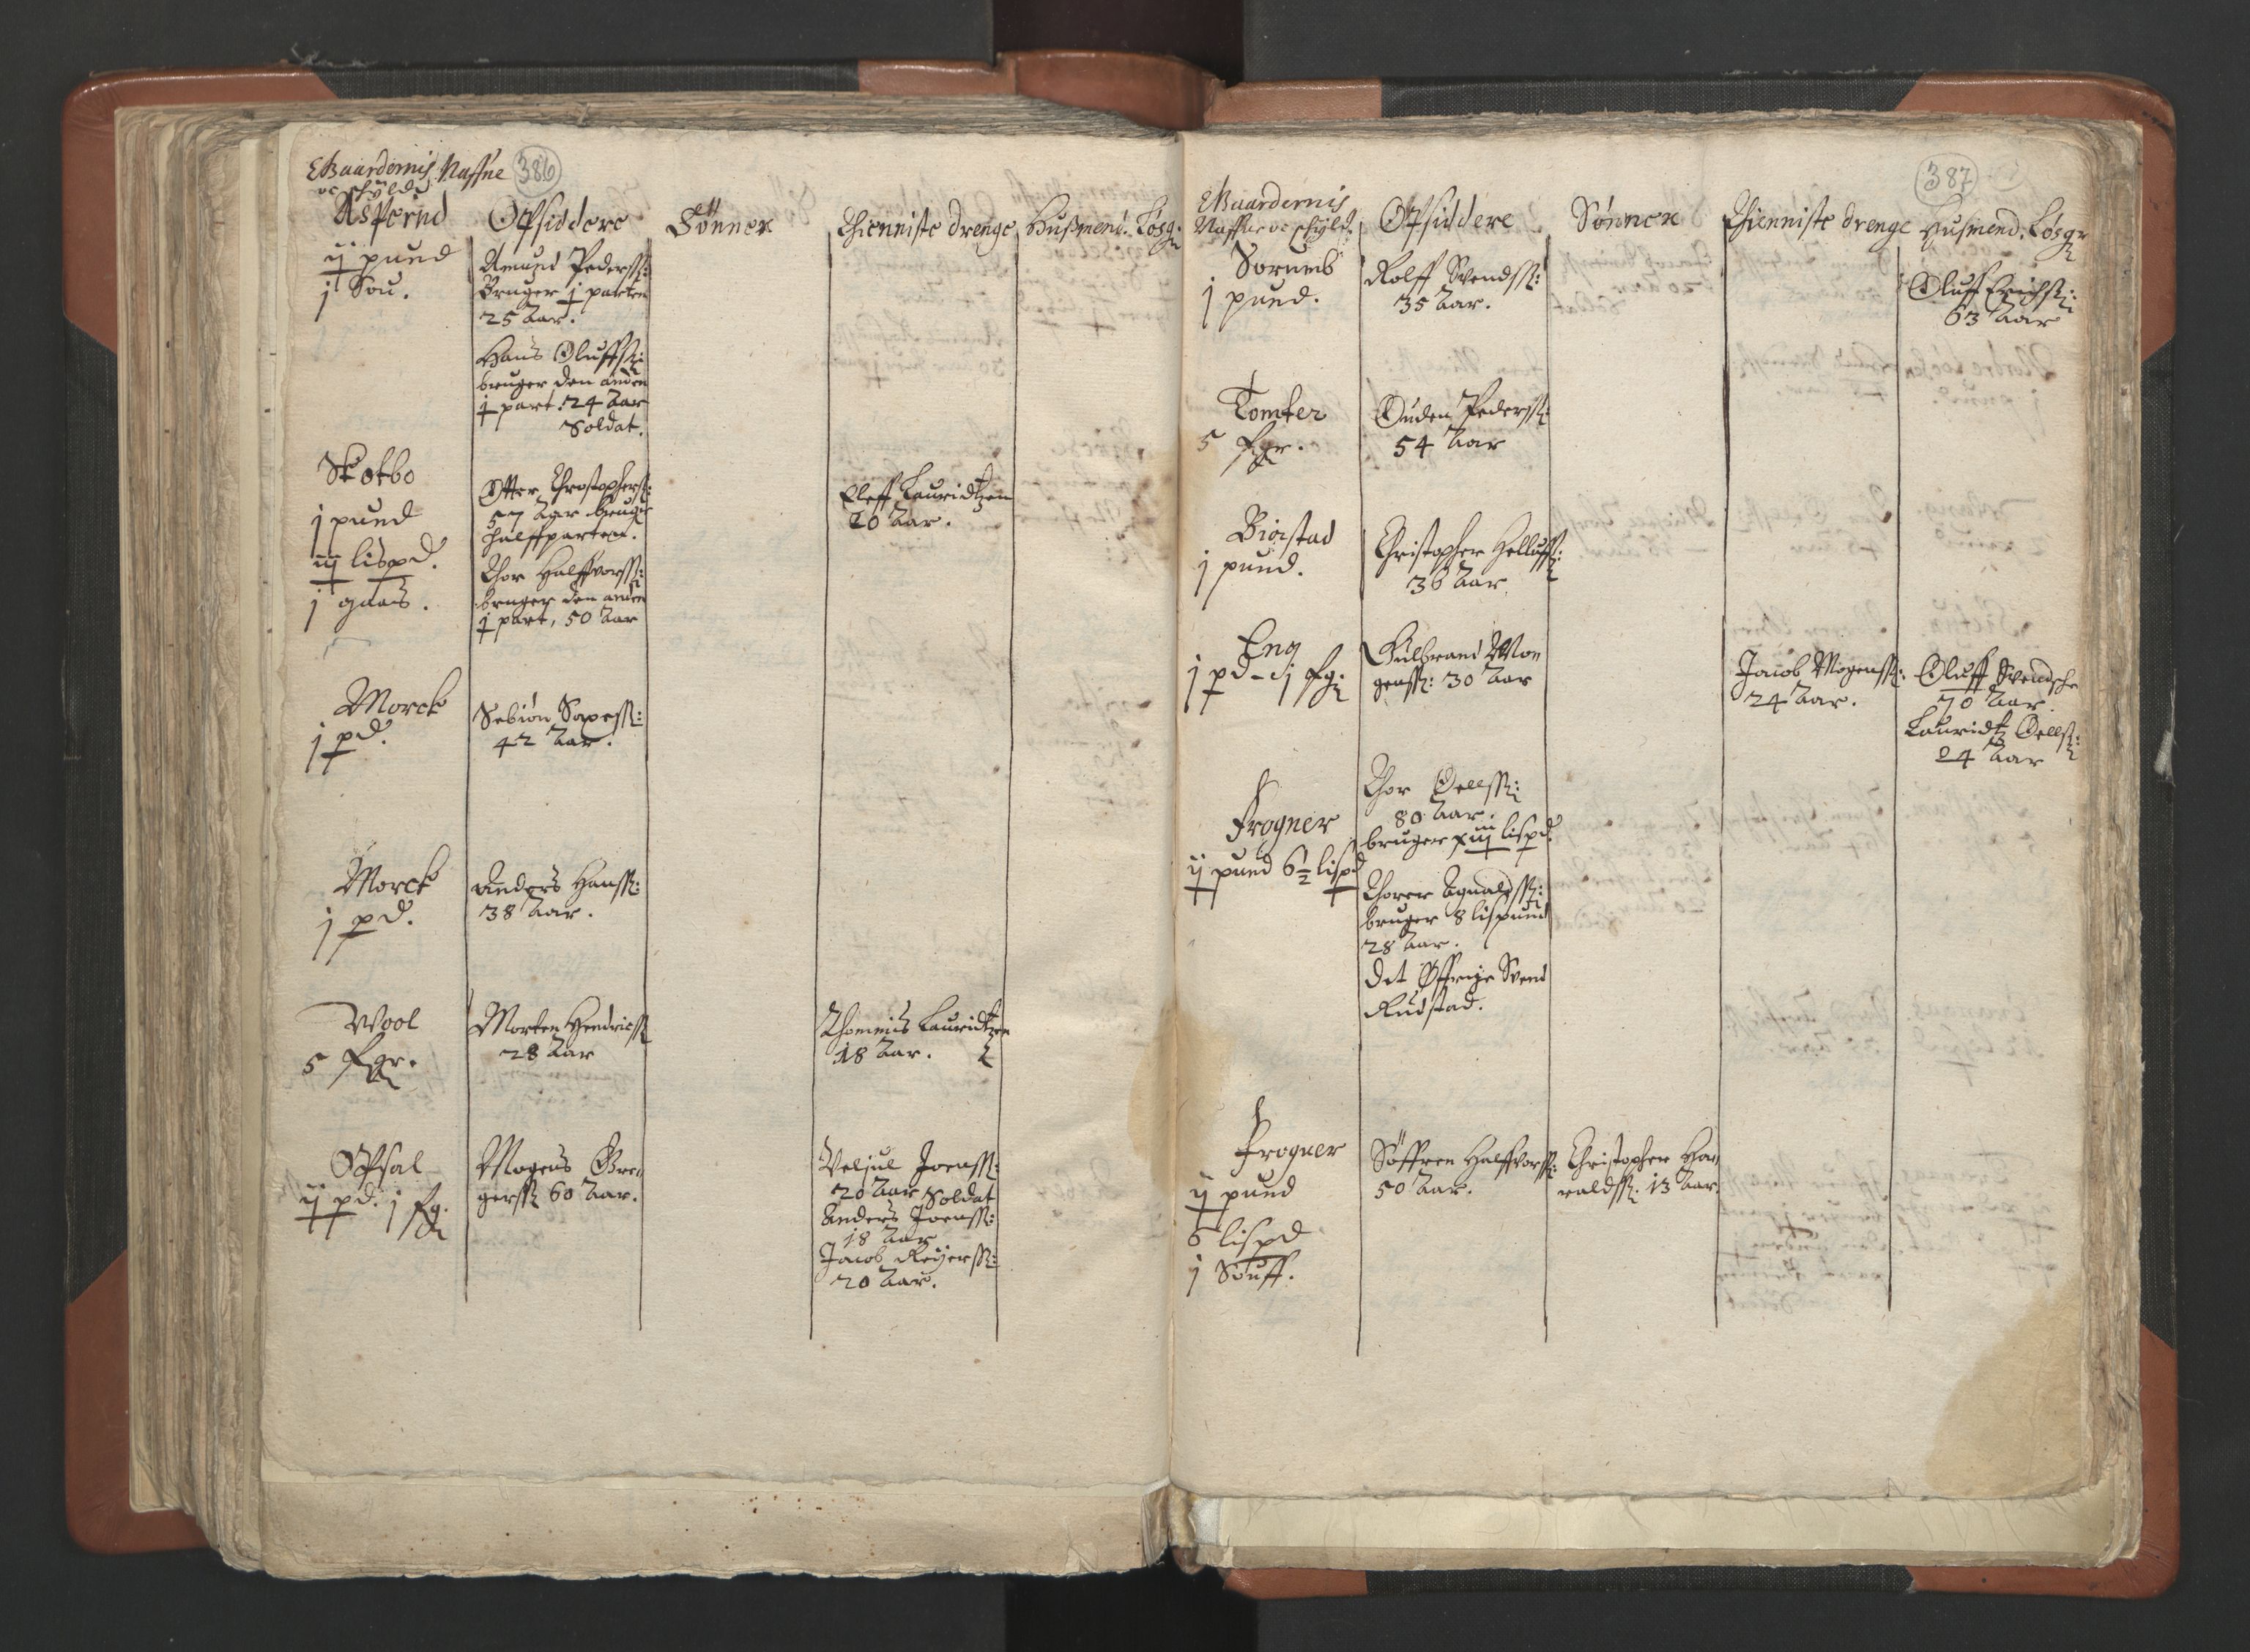 Gaardernis Naffne
oc schyld
386
Opsiddere
Sønner
Thienniste drenge
Husmend. Løsg.
Aspernd
ij pund
j Sou.
Amund Pederss:
Bruger j parten
25 Aar.
Hans Oluffss:
bruger den anden
j part. 24 Aar
Soldat.
Skotbo
j pund
iij lispd.
j gaas.
Otter Christophers:
57 Aar bruger
halffparten.
Thor Halffvorss:
bruger den anden
j part, 50 Aar
Eleff Lauridtzen
20 Aar.
Morck
j pd.
42 Aar.
Morck
j pd.
Anders Hanss:
38 Aar.
Wool
5 fgr.
Morten Hendricss
28 Aar
Thommis Lauridtzen
18 Aar.
Opsal
ij pd. j fg.
Mogens Bre
gerss 60 Aar.
Veljul Joenss:
20 Aar Soldat
Anders Joenss:
18 Aar
Jacob Reijerss:
20 Aar.
387
Gaardernis
Naffne oc schyld.
Opsiddere
Sønner
Thienniste drenge
Husmend. Løsgr
Sorumb
j pund.
Rolff Svendss:
35 Aar.
Oluff Erichss:
63 Aar
Tomter
5 fgr.
Ouden Pederss:
54 Aar
Biøstad
j pund.
Christopher Helluffss:
36 Aar.
Eng
j pd - j fg.
Gulbrand Mon
genss: 30 Aar
Jacob Mogenss:
24 Aar.
Oluff Svendsche
70 Aar.
Lauridtz Oelss:
24 Aar
Frogner
ij pund 6½ lispd
Thor Oelss:
80 Aar.
bruger xiij lispd.
Thorer Agualdss:
bruger 8 lispund
28 Aar.
Det Øffrige Svend
Rudstad.
Frogner
ij pund
6 lispd
j Souff.
Søffren Halffvorss:
50 Aar.
Christopher Har
raldss: 13 Aar.